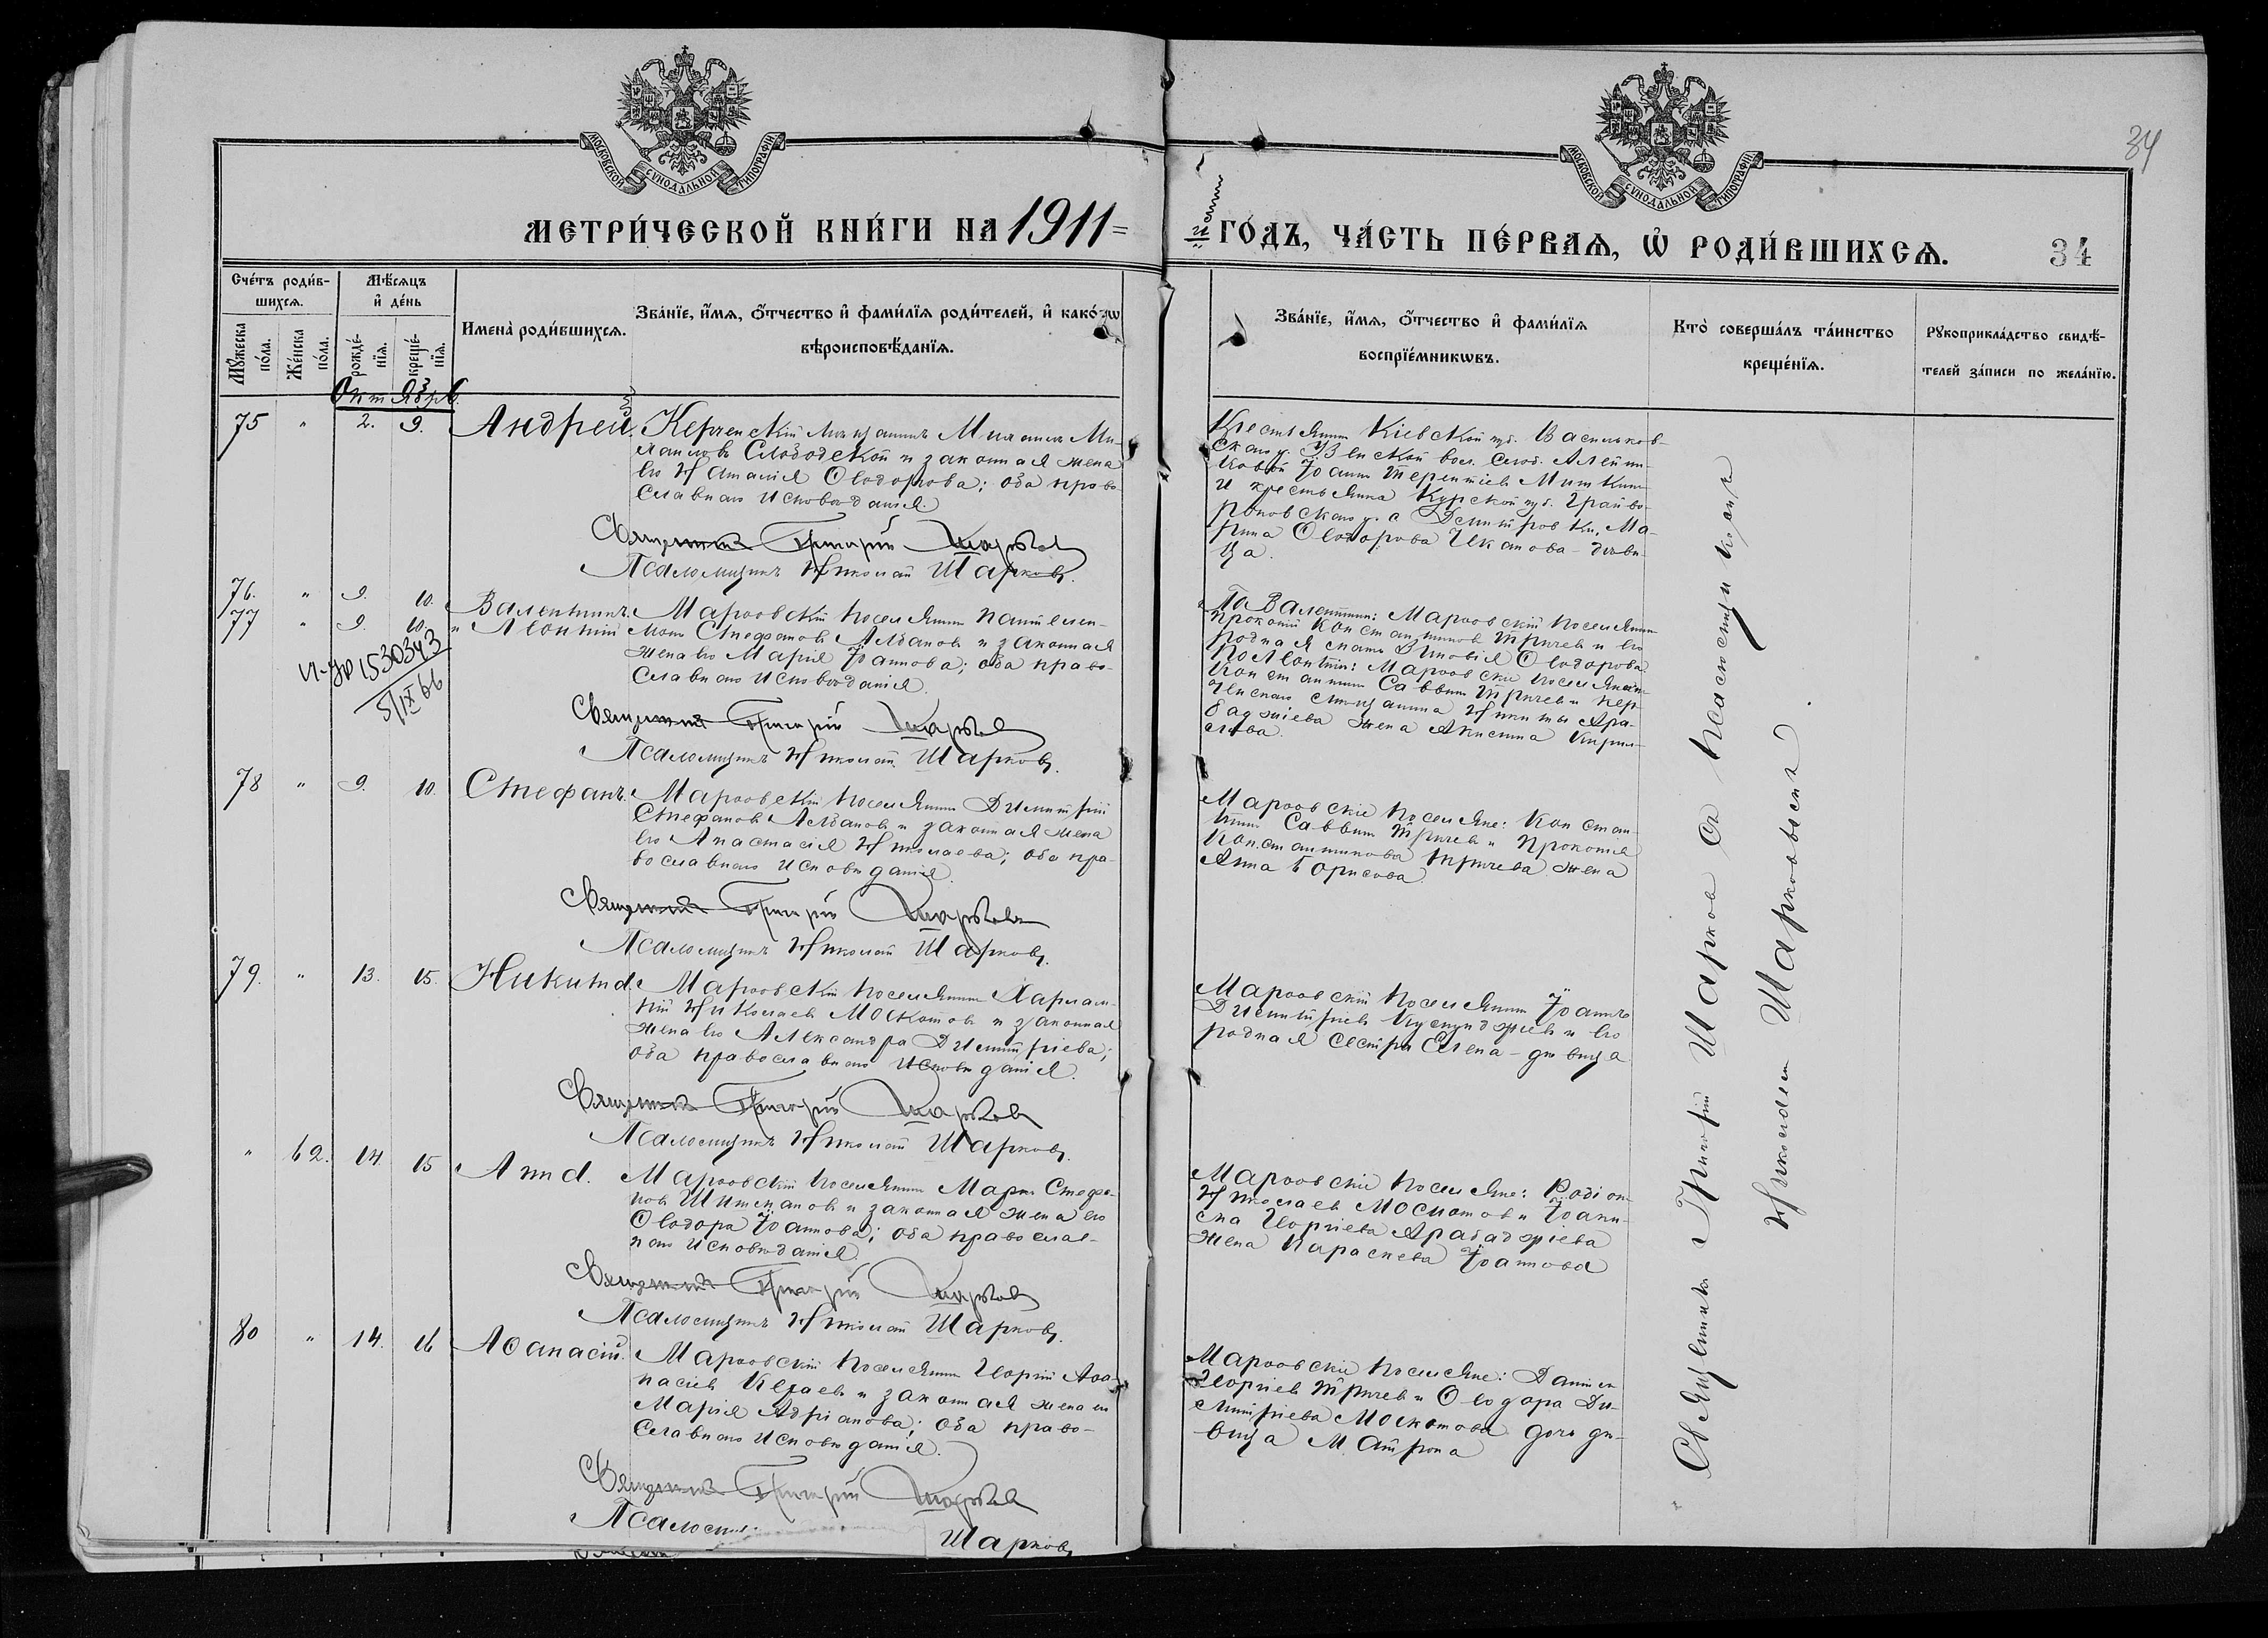 34
МОСКОВСКОЙ СУНОДАЛЬНОЙ ТИПОГРАФІИ
МОСКОВСКОЙ СУНОДАЛЬНОЙ ТИПОГРАФІИ
МЕТРИ́ЧЕСКОЙ КНИ́ГИ НА 1911=
й ГО́ДЪ, ЧА́СТЬ ПЕ́РВАѦ, Ѡ҆ РОДИ́ВШИХСѦ.
34
Сче́тъ роди́в-
шихсѧ.
Мꙋжеска по́ла.
Же́нска по́ла.
Мѣ́сѧцъ
и҆ де́нь
рожде́-
нїѧ.
креще́-
нїѧ.
Имена̀ роди́вшихсѧ.
Зва́нїе, и҆́мѧ, ѻ҆́тчество и҆ фами́лїѧ роди́телей, и҆ како́гѡ
вѣроисповѣ́данїѧ.
Зва́нїе, и҆́мѧ, ѻ҆́тчество и҆ фами́лїѧ
воспрїе́мникѡвъ.
Кто̀ соверша́лъ та́инство
креще́нїѧ.
Рꙋкоприкла́дство свидѣ́-
телей за́писи по жела́нїю.
Октябрь.
75 " 2. 9. Андрей. Керченскій мѣщанинъ Михаилъ Ми-
хаиловъ Слободской и законная жена
его Наталія Ѳеодорова; оба право-
славнаго исповѣданія.
Священникъ Григорій Шарковъ
Псаломщикъ Николай Шарковъ.
Крестьянинъ Кіевской губ. Васильков-
скаго у.
Іоаннъ Терентіевъ
и крестьянка Курской губ. Грайво-
ронскаго у. с. Дмитровки, Ма-
рина Ѳеодорова Чеканова - дѣви-
ца.
76. " 9. 10. Валентинъ. Маріовскій поселянинъ Пантелеи-
77 " 9. 10. " Леонтій монъ Стефановъ Ачбановъ и законная
жена его Марія Іоаннова; оба право-
славнаго исповѣданія.
1530343
5/IX 66
Священникъ Григорій Шарковъ
Псаломщикъ Николай Шарковъ.
По Валентинѣ: Маріовскій поселянинъ
Прокопій Константиновъ Тричевъ и его
родная Зиновія Ѳеодорова.
По Леонтіи: Маріовскіе поселяне:
Константинъ Саввинъ Тричевъ и Кер-
ченскаго мѣщанина Никиты Ара-
баджіева жена Акилина Кирил-
лова.
78 " 9. 10. Стефанъ. Маріовскій поселянинъ Димитрій
Стефановъ Ачбановъ и законная жена
его Анастасія Николаева; оба пра-
вославнаго исповѣданія.
Священникъ Григорій Шарковъ
Псаломщикъ Николай Шарковъ.
Маріовскіе поселяне: Констан-
тинъ Саввинъ Тричевъ и Прокопія
Константинова Тричева жена
Анна Борисова.
79. " 13. 15. Никита. Маріовскій поселянинъ Харлам-
пій Николаевъ Москотовъ и законная
жена его Александра Димитріева;
оба православнаго исповѣданія.
Священникъ Григорій Шарковъ
Псаломщикъ Николай Шарковъ.
Маріовскій поселянинъ Іоаннъ
Димитріевъ и его
родная сестра Елена - дѣвица
" 62. 14. 15 Анна. Маріовскій поселянинъ Маркъ Стефа-
новъ Шишмановъ и законная жена его
Ѳеодора Іоаннова; оба православ-
наго исповѣданія.
Священникъ Григорій Шарковъ
Псаломщикъ Николай Шарковъ.
Маріовскіе поселяне: Родіонъ
Николаевъ Москотовъ и Іоаки-
ма Георгіева Арабаджіева
жена Параскева Іоаннова
80 " 14. 16 Аѳанасій. Маріовскій поселянинъ Георгій Аѳа-
насіевъ и законная жена его
Марія Адріанова; оба право-
славнаго исповѣданія.
Священникъ Григорій Шарковъ
Псаломщ. Шарковъ
Маріовскіе поселяне: Даніилъ
Георгіевъ Тричевъ и Ѳеодора Ди-
митріева Москотова дочь дѣ-
вица Матрона
Священникъ Григорій Шарковъ съ псаломщикомъ
Николаемъ Шарковымъ.